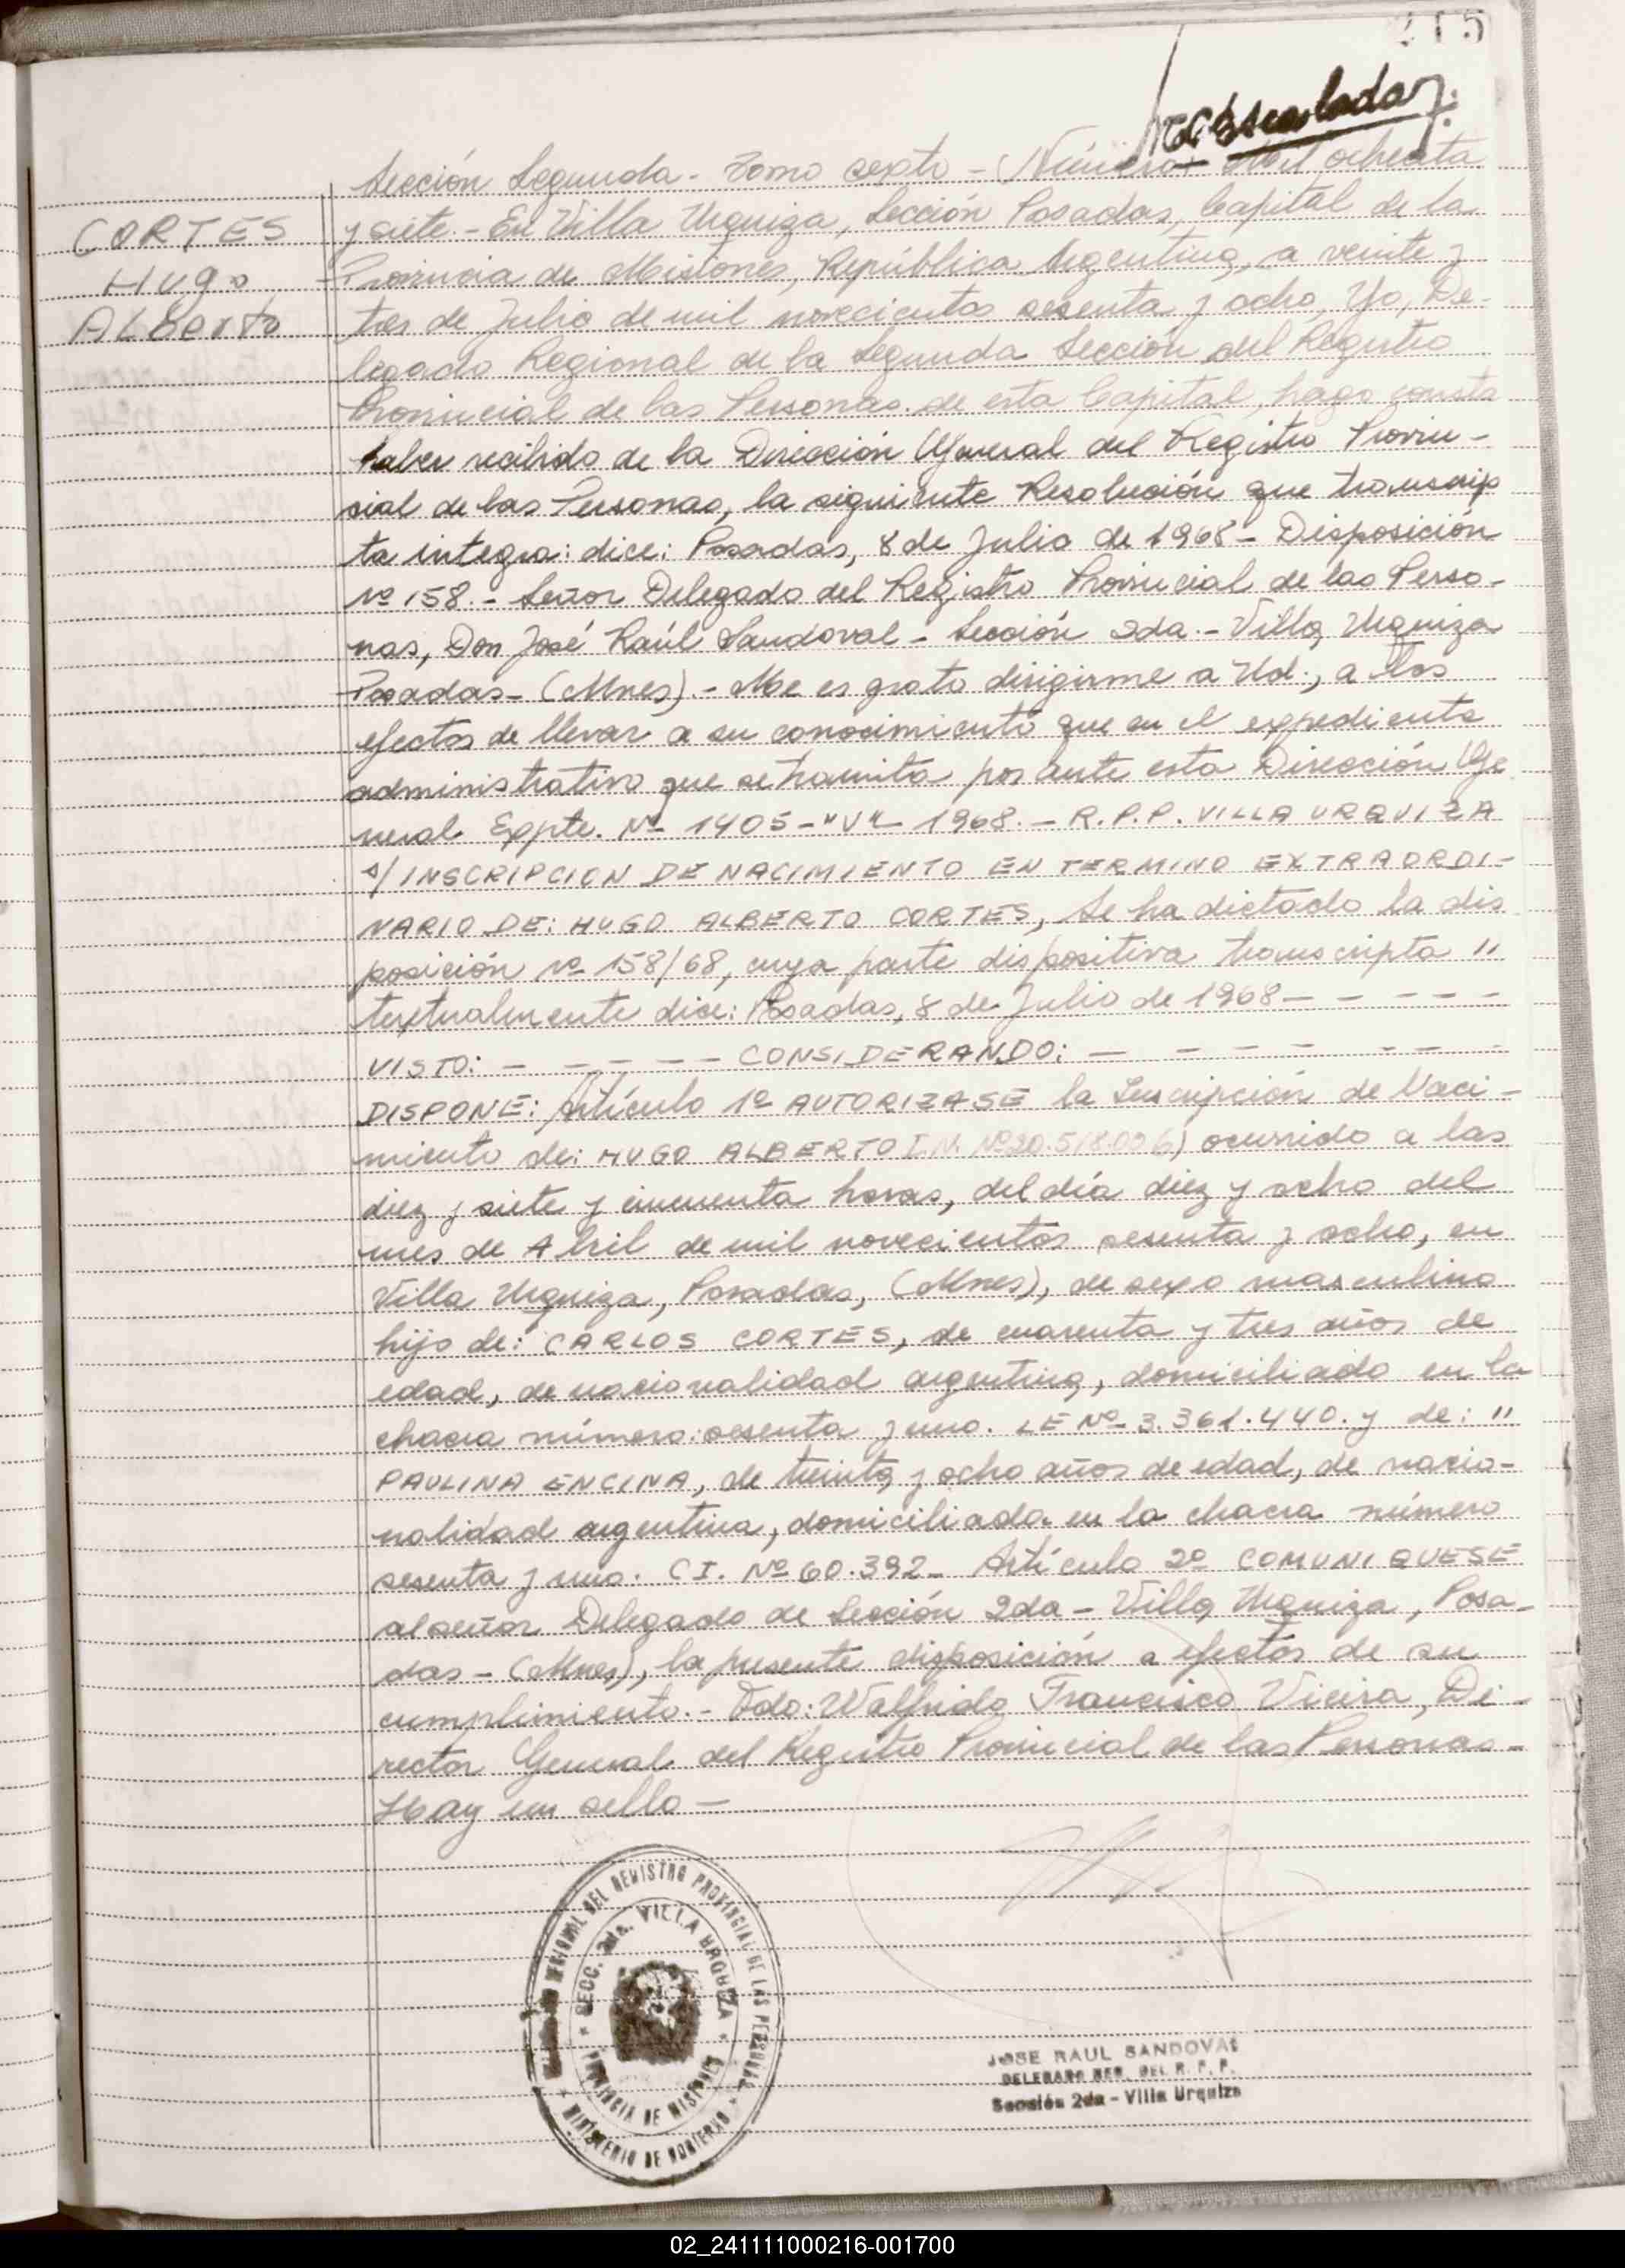 215
Escalada
Sección Segunda - Tomo sexto - Número Mil ochenta
CORTES
Hugo
Alberto
y siete.- En Villa Urquiza, Sección Posadas, Capital de la
Provincia de Misiones, República Argentina, a veinte y
tres de Julio de mil novecientos sesenta y ocho, Yo, De-
legado Regional de la Segunda Sección del Registro
Provincial de las Personas de esta Capital, hago consta
haber recibido de la Dirección General del Registro Provin-
cial de las Personas, la siguiente Resolución que transcrip
ta integra: dice: Posadas, 8 de Julio de 1968 - Disposición
Nº 158.- Señor Delegado del Registro Provincial de las Perso-
nas, Don José Raúl Sandoval - Sección 2da.- Villa Urquiza
Posadas - (Mnes).- Me es grato dirigirme a Ud., a los
efectos de llevar a su conocimiento que en el expediente
administrativo que se tramita por ante esta Dirección Ge
neral Expte. Nº 1405-"V" 1968.- R.P.P. VILLA URQUIZA
s/ INSCRIPCION DE NACIMIENTO EN TERMINO EXTRAORDI-
NARIO DE: HUGO ALBERTO CORTES, Se ha dictado la dis
posición Nº 158/68, cuya parte dispositiva transcripta "
textualmente dice: Posadas, 8 de Julio de 1968 - - - - -
VISTO: - - - - - CONSIDERANDO: - - - - - - -
DISPONE: Artículo 1º AUTORIZASE la Inscripción de Naci-
miento de: HUGO ALBERTO I.M. Nº 20.518.006) ocurrido a las
diez y siete y cincuenta horas, del día diez y ocho del
mes de Abril de mil novecientos sesenta y ocho, en
Villa Urquiza, Posadas, (Mnes), de sexo masculino
hijo de: CARLOS CORTES, de cuarenta y tres años de
edad, de nacionalidad argentina, domiciliado en la
chacra número: sesenta y uno. LE Nº 3.361.440. y de: "
PAULINA ENCINA, de treinta y ocho años de edad, de nacio-
nalidad argentina, domiciliada en la chacra número
sesenta y uno. CI. Nº 60.392 - Artículo 2º COMUNIQUESE
al señor Delegado de Sección 2da - Villa Urquiza, Posa-
das - (Mnes), la presente disposición a efectos de su
cumplimiento.- Fdo: Walfrido Francisco Vieira, Di-
rector General del Registro Provincial de las Personas -
Hay un sello -
REGIONAL DEL REGISTRO PROVINCIAL DE LAS PERSONAS
SECC. 2da. VILLA URQUIZA
PROVINCIA DE MISIONES
MINISTERIO DE GOBIERNO
JOSE RAUL SANDOVAL
DELEGADO REG. DEL R. P. P.
Sección 2da - Villa Urquiza
02_241111000216-001700